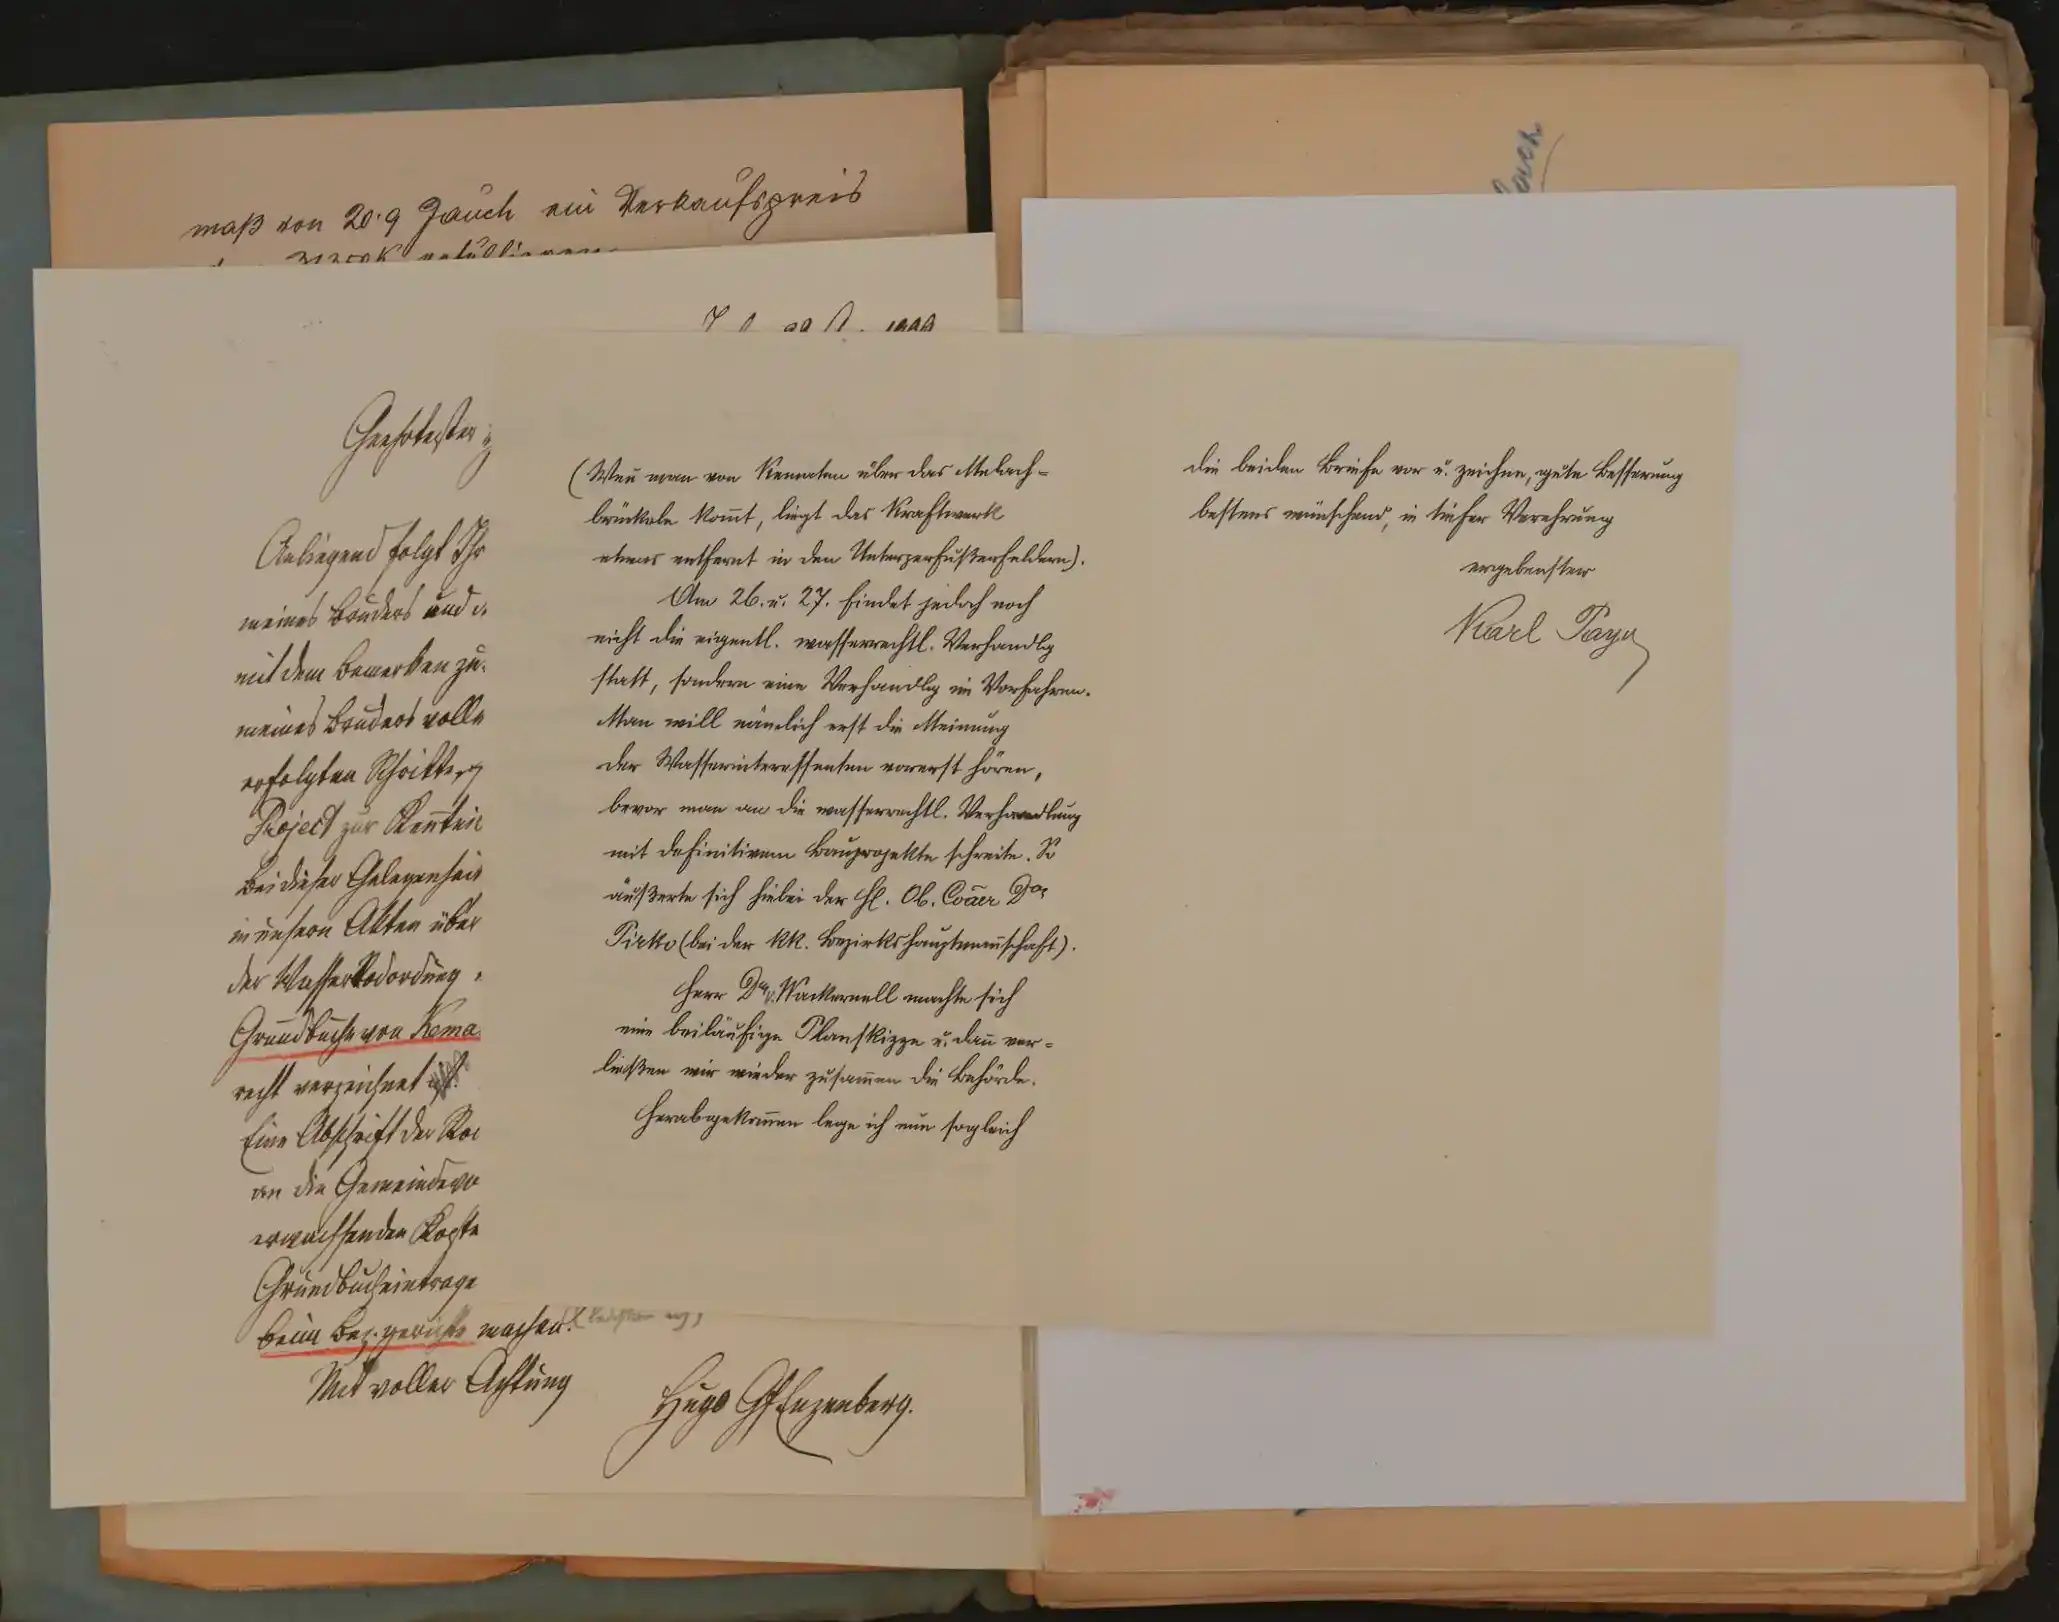 maß von 20·9 Jauch ein Verkaufspreis
Jauch
Geehrtester
Anliegend folgt Ihr
meines Bruders und d.
mit dem Bemerken zu.
meines Bruders volle
erfolgten Schritte,
Project zur Kenntnis
Bei dieser Gelegenheit
in unsern Akten über
der Wasser Rodordnung
Grundbuche von Kema
recht verzeichnet ist.
Eine Abschrift der Ro
an die Gemeindevo
erwachsenden Koste
Grundbucheintrage
beim Bez. gerichte machen.
Mit voller Achtung
Hugo Gf Enzenberg.
(Weñ man von Kematen über das Melach=
brückele kom̄t, liegt das Kraftwerk
etwas entfernt in den Unterperfußerfeldern).
Am 26. u. 27. findet jedoch noch
nicht die eigentl. wasserrechtl. Verhandlg
statt, sondern eine Verhandlg im Vorfahren.
Man will nämlich erst die Meinung
der Wasserinteressenten vorerst hören,
bevor man an die wasserrechtl. Verhandlung
mit definitivem Bauprojekte schreite. So
äußerte sich hiebei der H. Ob. Coäer Dor
Pirko (bei der kk. Bezirkshauptmañschaft).
Herr Dr. v. Wackernell machte sich
eine beiläufige Planskizze u. dañ ver=
ließen wir wieder zusam̄en die Behörde.
Herabgekom̄en lege ich nun sogleich
die beiden Briefe vor u. zeichne, gute Besserung
bestens wünschend, in tiefer Verehrung
ergebenster
Karl Payr